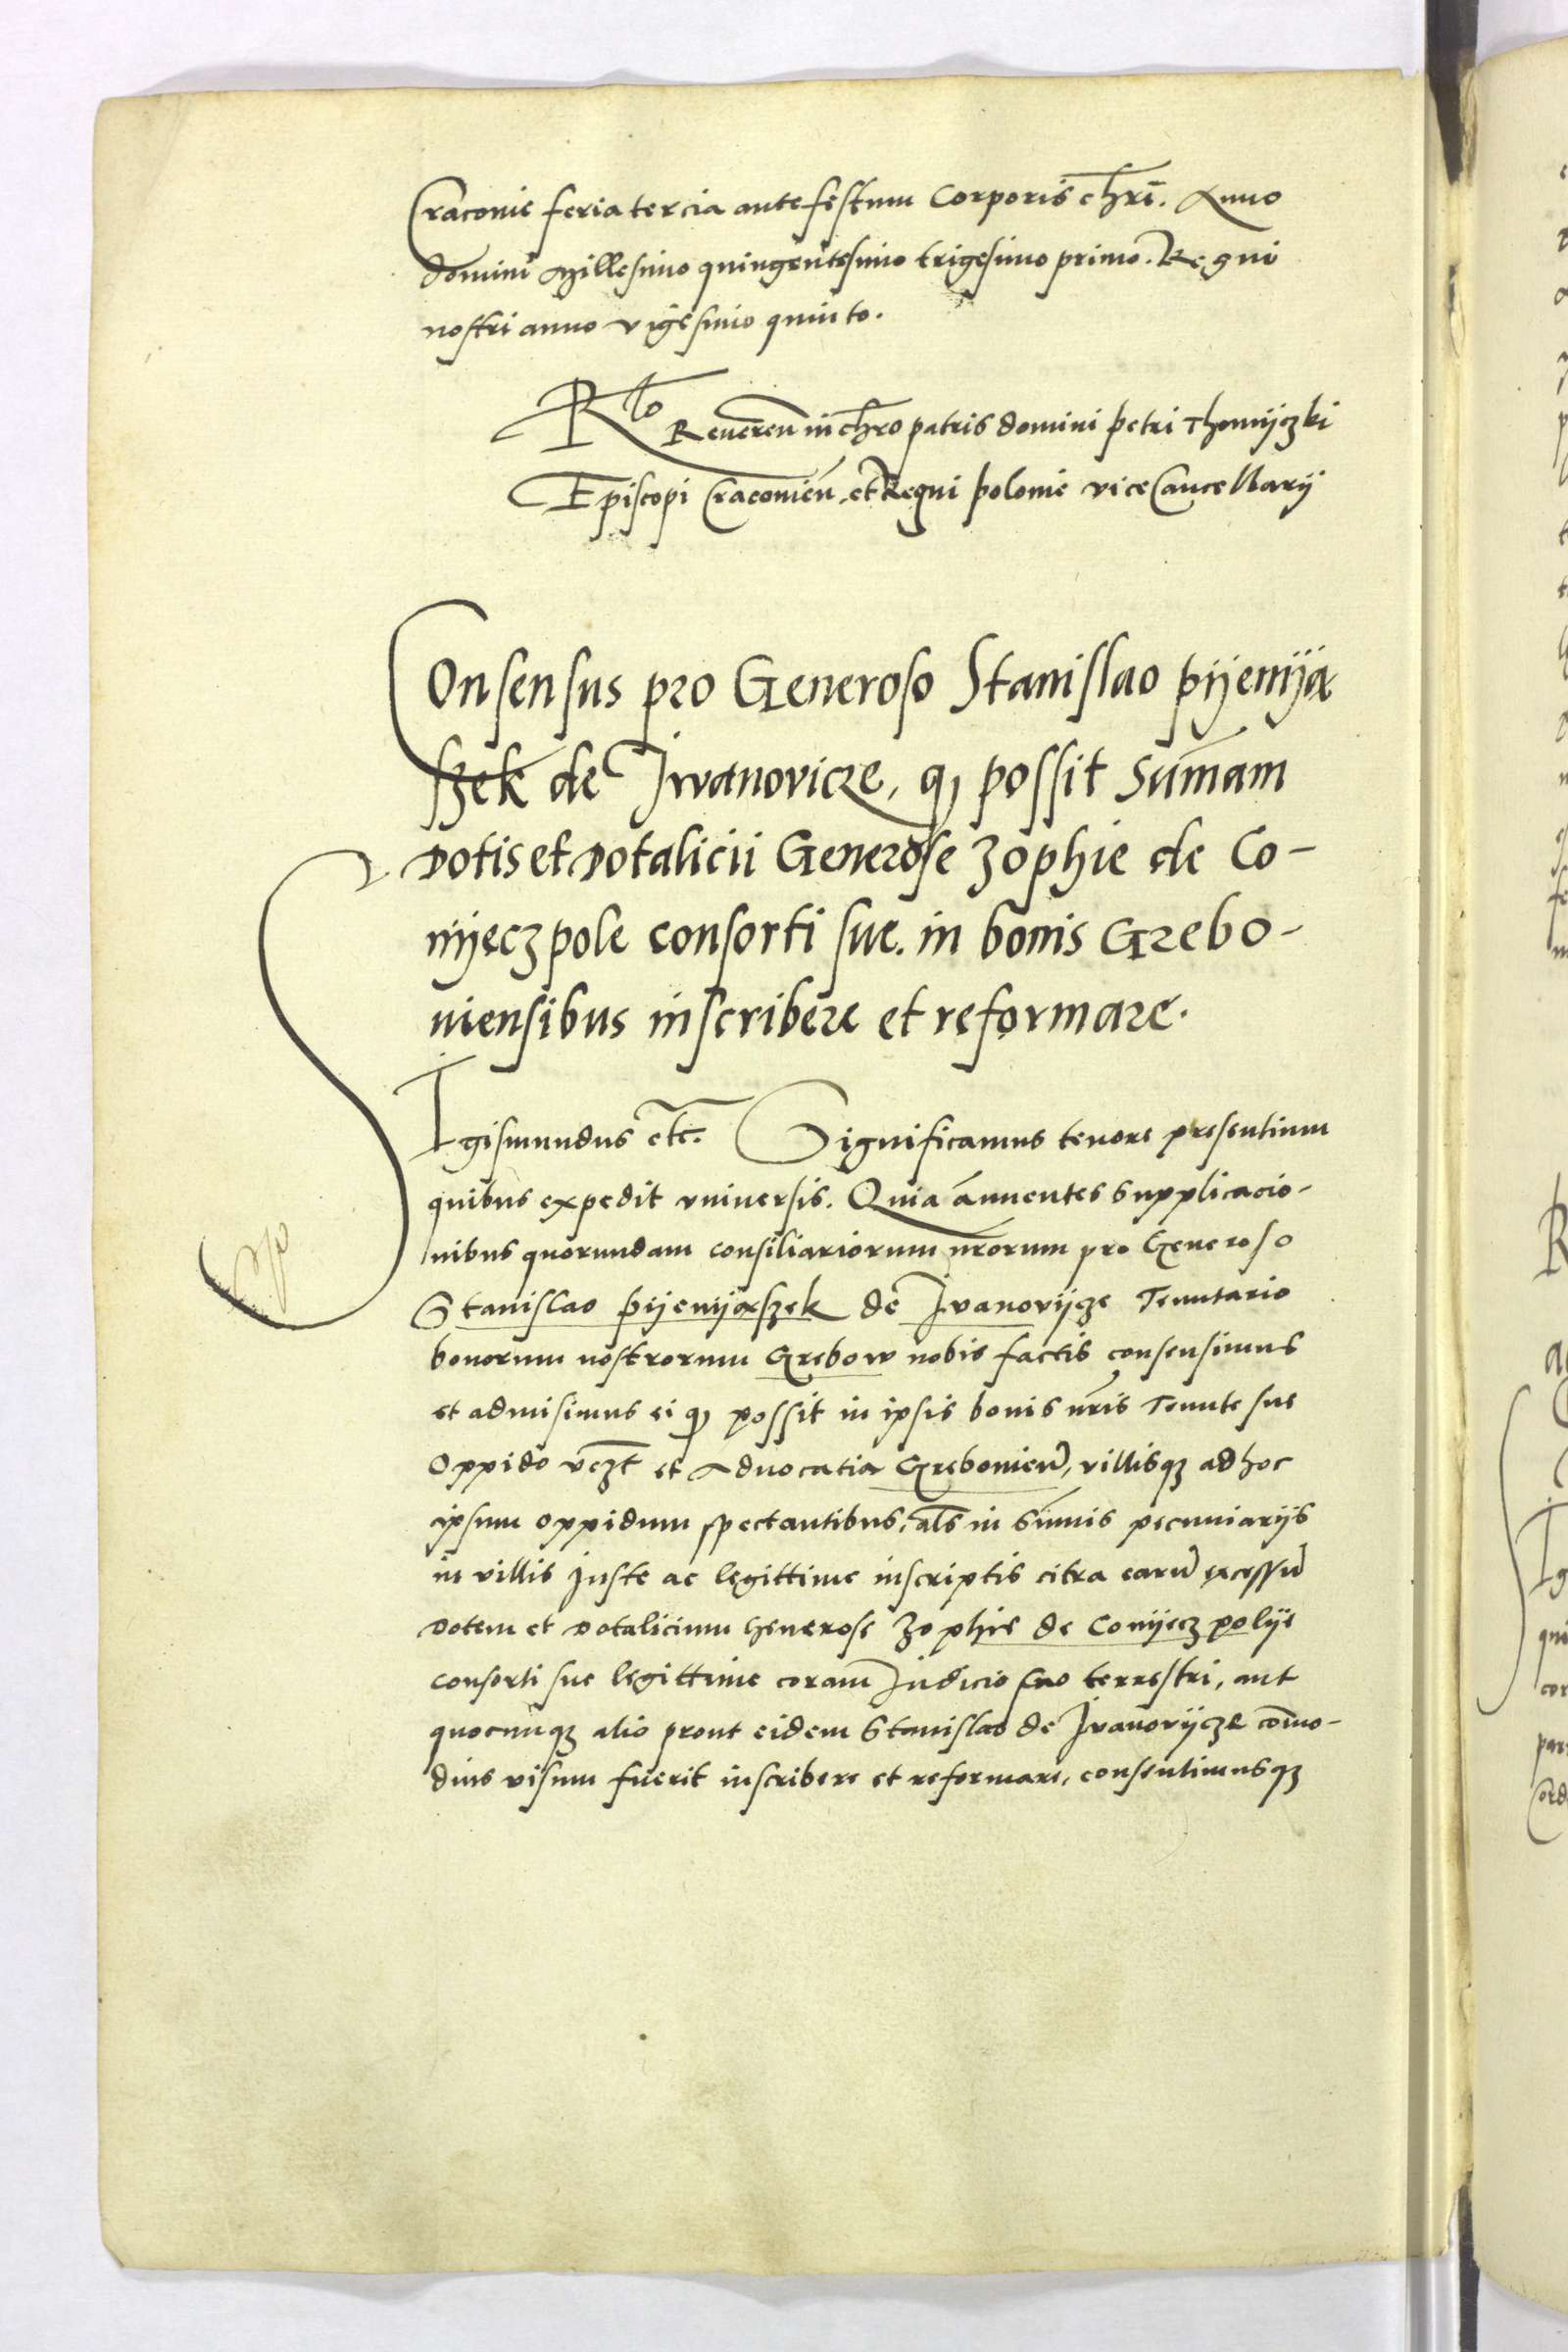 Cracovie feria tercia ante festum Corporis chri̅. Anno
domini Millesimo quingentesimo trigesimo primo. Regni
nostri anno vigesimo quinto.
Rlo Reveren̅ in chro̅ patris domini petri Thomijczki
Episcopi Cracovien̅. et Regni polonie viceCancellarij
Consensus pro Generoso Stanislao pijeniją
szek de Iwanovicze, qꝫ possit sum̅am
dotis et dotalicii Generose zophie de Co-
nijeczpole consorti sue. in bonis Grebo-
viensibus inscribere et reformare.
SIgismundus etc̅. Significamus tenore presentium
quibus expedit vniversis. Quia annuentes supplicacio-
nibus quorundam consiliariorum nr̅orum pro Generoso
Stanislao pijenijąszek de Ivanovijcze Tenutario
bonorum nostrorum Grebow nobis factis consensimus
et admisimus ei qꝫ possit in ipsis bonis nr̅is Tenute sue
Oppido vczt̅ et Advocatia Grebovien̅, villisqꝫ ad hoc
ipsum oppidum spectantibus, al̅s in sum̅is pecuniarijs
in villis Juste ac legittime inscriptis citra earu̅ excessu̅
dotem et dotalicium Generose Zophie de Conijeczpolije
consorti sue legittime coram Judicio suo terrestri, aut
quocunqꝫ alio prout eidem Stanislao de Ivanovijcze com̅o-
dius visum fuerit inscribere et reformare, consentimusqꝫ